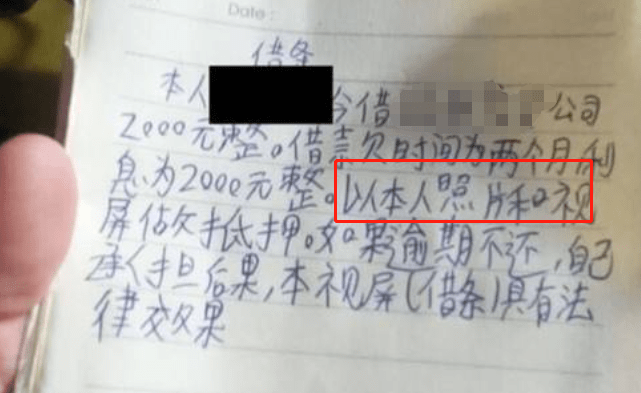 Date:
借条
本人 今借 公司
2000元整。借款时间为两个月利
息为2000元整。以本人照片和视
屏做抵押。如果逾期不还,自己
承担后果,本视屏(借条)具有法
律效果